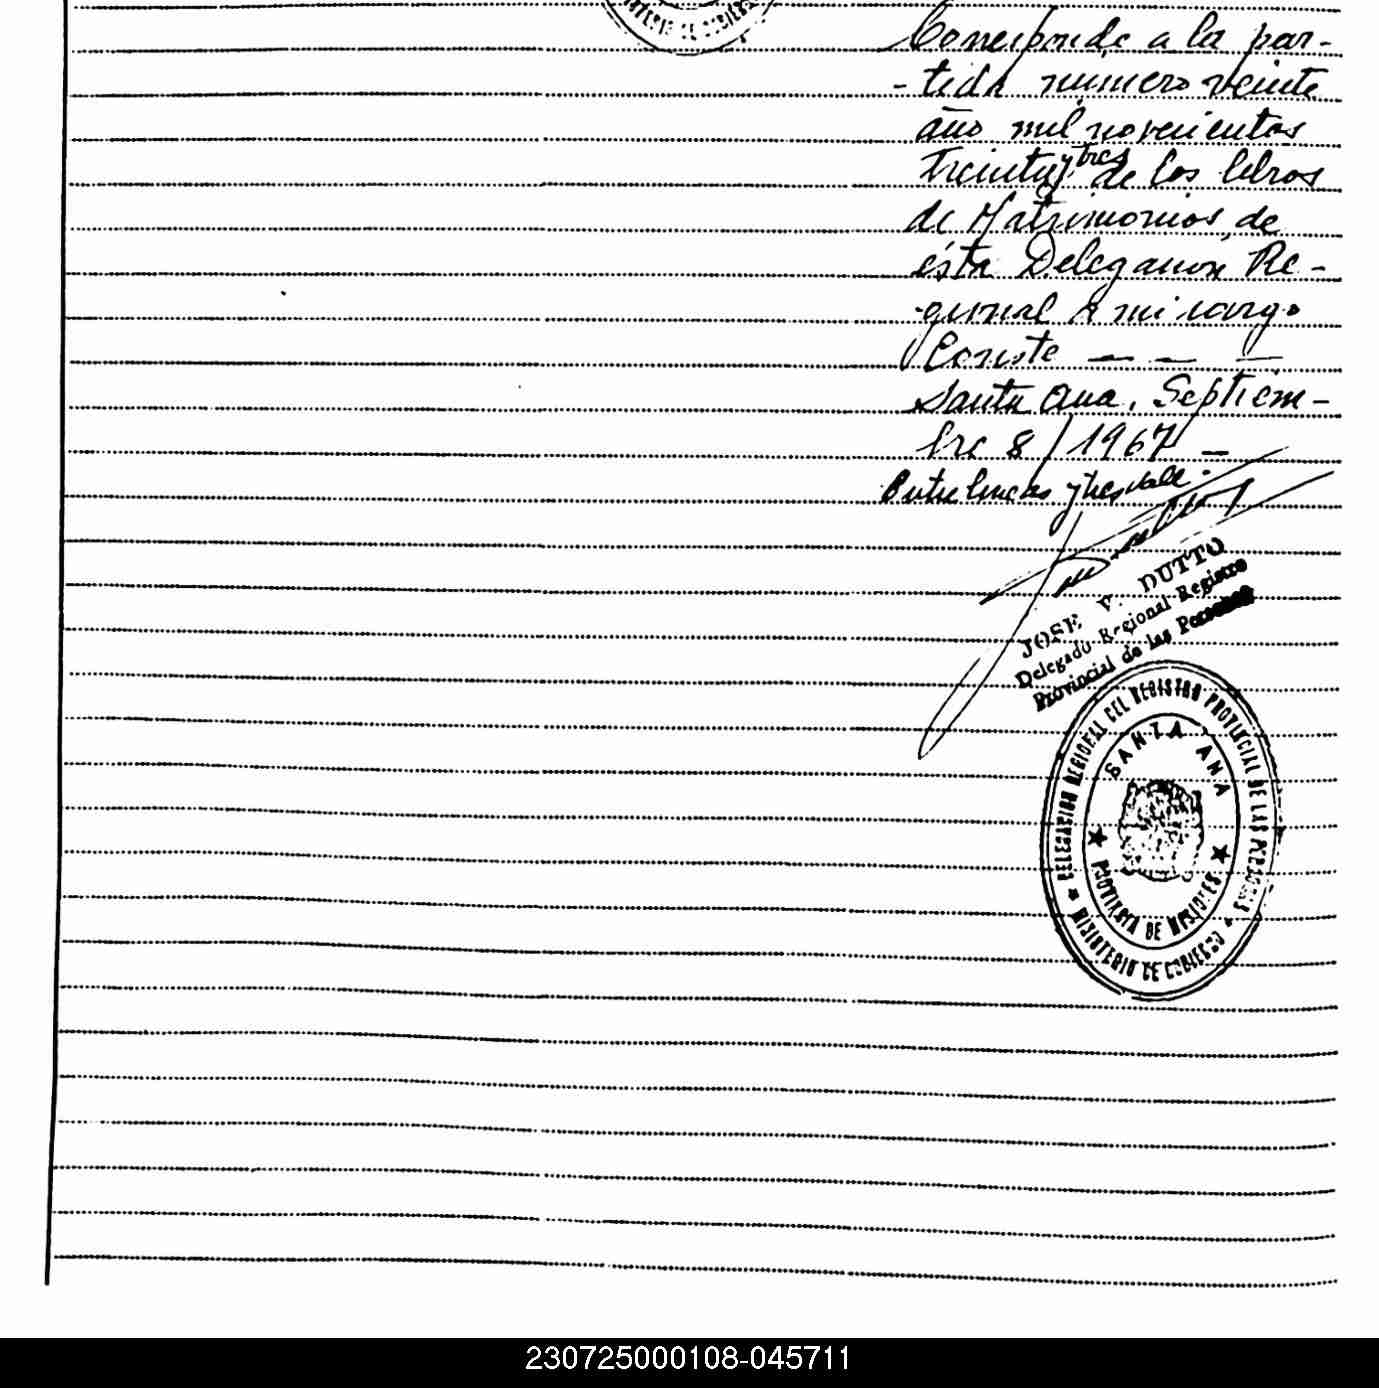 MINISTERIO DE GOBIERNO
Corresponde a la par-
-tida número veinte
año mil novecientos
Treinta y tres de los libros
de Matrimonios, de
ésta Delegación Re-
-gional a mi cargo
Conste — — —
Santa Ana, Septiem-
bre 8/1967 —
Entre lineas y tres vale.
JOSE V. DUTTO
Delegado Regional Registro
Provincial de las Personas
DELEGACION REGIONAL DEL REGISTRO PROVINCIAL DE LAS PERSONAS
SANTA ANA
PROVINCIA DE MISIONES
MINISTERIO DE GOBIERNO
230725000108-045711